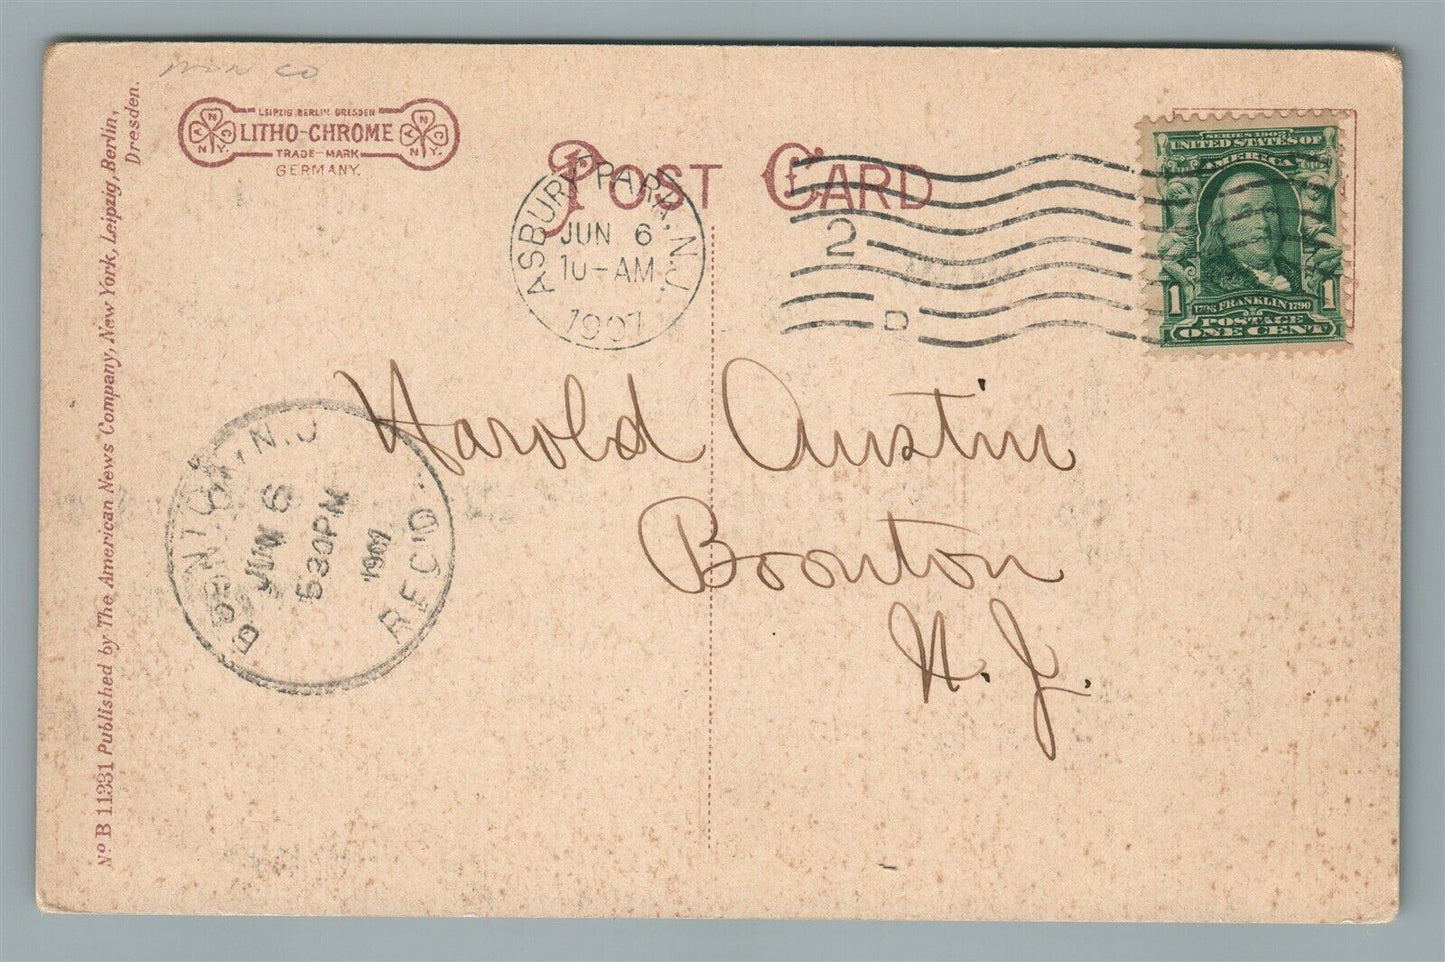 LEIPZIG BERLIN DRESDEN
LITHO-CHROME
TRADE-MARK
GERMANY.
A N C N.Y.
A N C N.Y.
POST CARD
ASBURY PARK, N.J.
JUN 6
10-AM
1907
2
D
SERIES 1902
UNITED STATES OF
AMERICA
1706 FRANKLIN 1790
POSTAGE
1 ONE CENT 1
Harold Austin
Boonton
N. J.
BOONTON, N.J.
JUN 6
530PM
1907
REC'D.
No B 11331 Published by The American News Company, New York, Leipzig, Berlin,
Dresden.